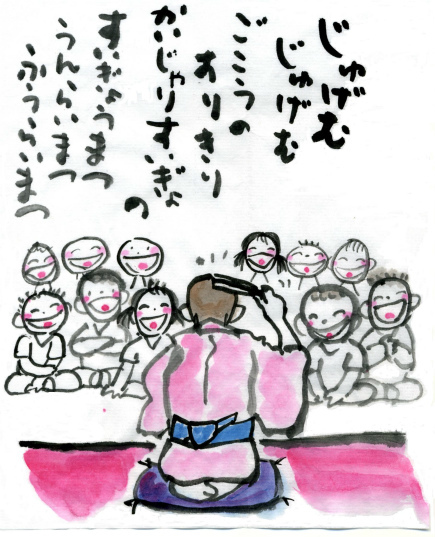 じゅげむ
じゅげむ
ごこうの
すりきり
かいじゃりすいぎょ
の
すいぎょうまつ
うんらいまつ
ふうらいまつ